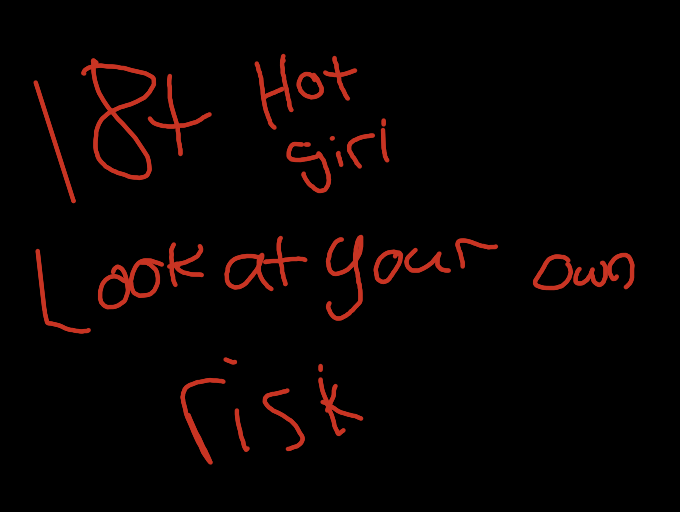 18+ Hot
girl
Look at your own
risk